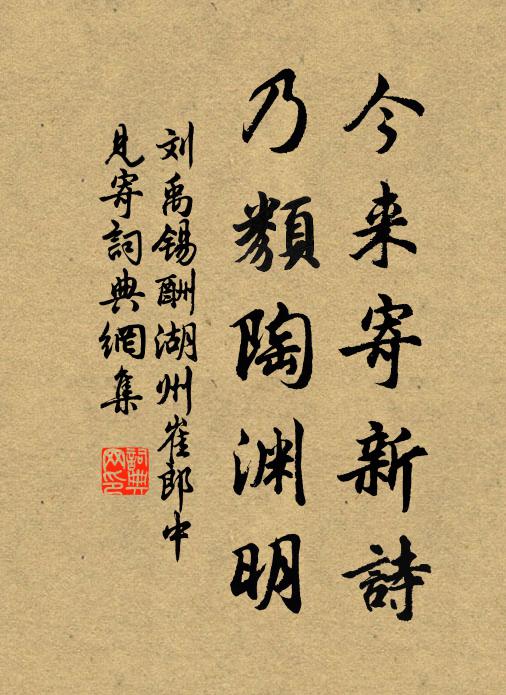 今来寄新詩
乃類陶渊明
刘禹锡酬湖州崔郎中
見寄詞典網集
詞典网印